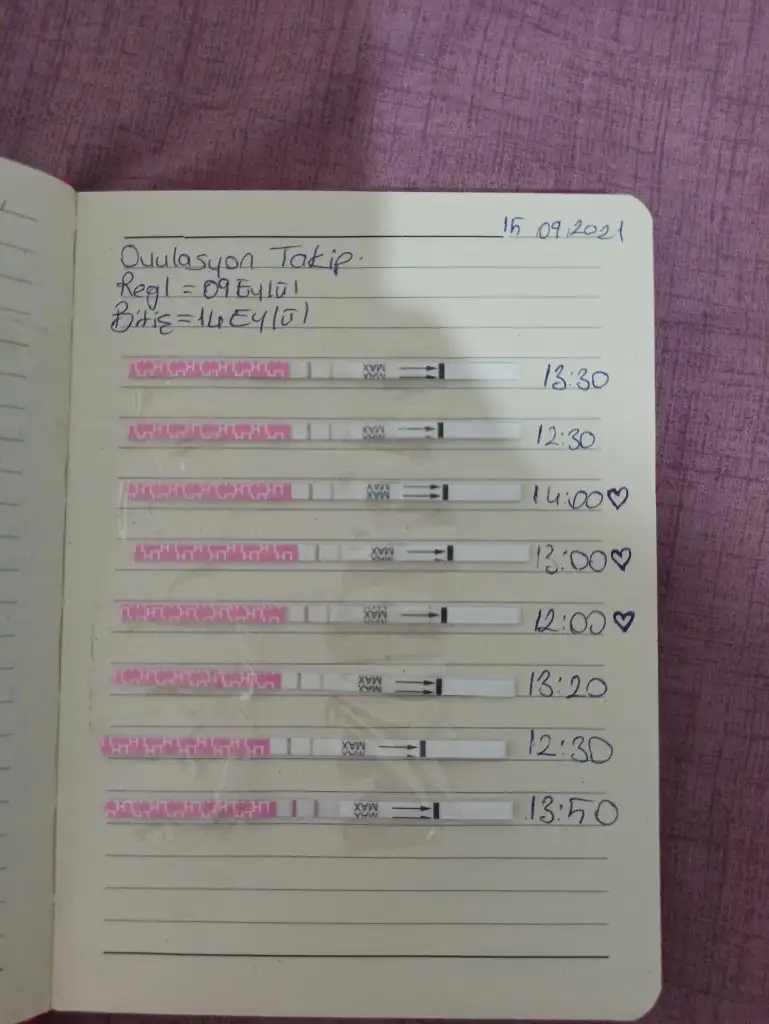 15.09.2021
Ovulasyon Takip.
Regl = 09 Eylül
Bitiş = 14 Eylül
MAX 13:30
MAX 12:30
MAX 14:00♡
MAX 13:00♡
MAX 12:00♡
MAX 13:20
MAX 12:30
MAX 13:50